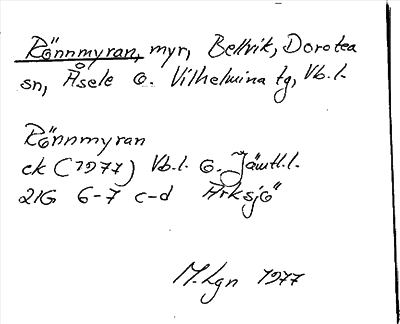 Rönnmyran, myr, Bellvik, Dorotea
sn, Åsele o. Vilhelmina tg, Vb.l.
Rönnmyran
ek (1977) Vb.l. o. Jämtl.l.
21G 6-7 c-d Arksjö
M.Lgn 1977